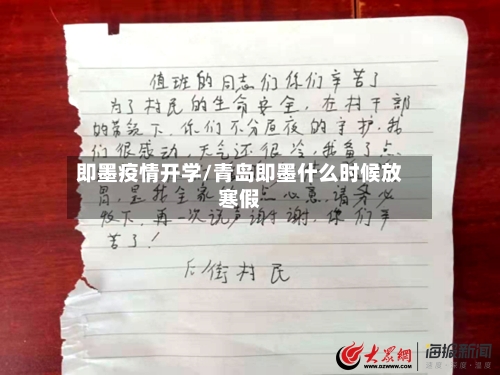 值班的同志们你们辛苦了
为了村民的生命安全,在村干部
的带领下,你们不分昼夜的守护,我
们很感动,天气还很冷,我备了点
即墨疫情开学/青岛即墨什么时候放
寒假
胃,是我全家 点心意,请务必
收下,再一次说声谢谢,你们辛
苦了!
后街村民
大众网
www.dzwww.com
海报新闻
速度·深度·温度